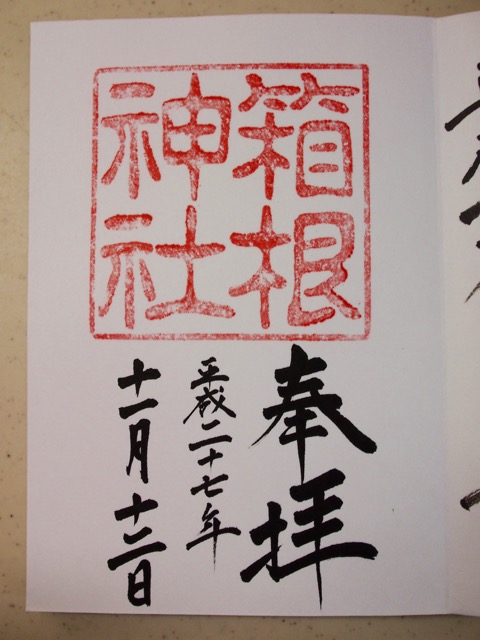 箱根
神社
奉拝
平成二十七年
十一月十三日